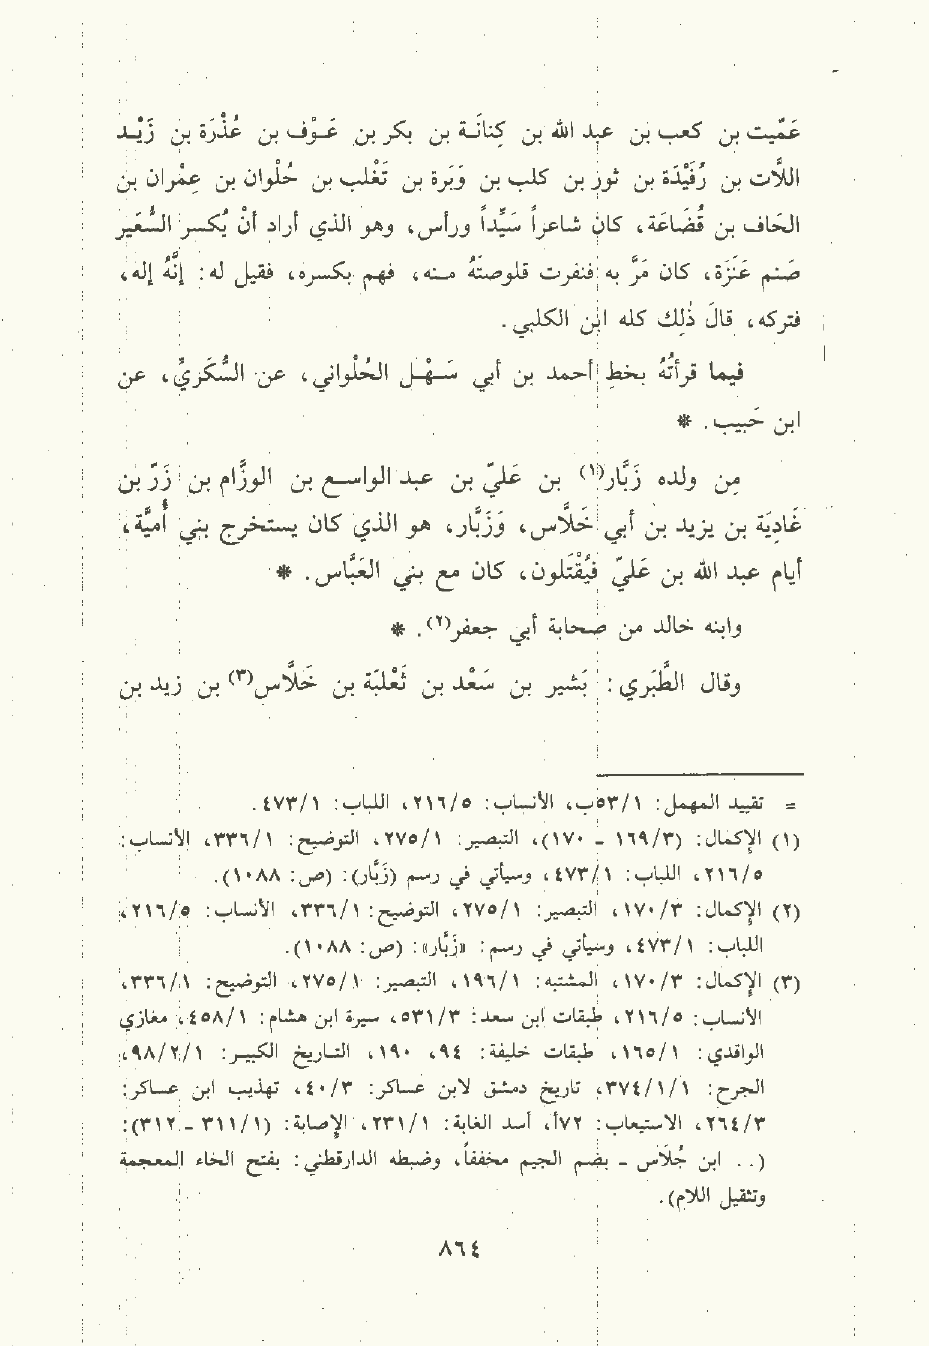 عَمّيت بن كعب بن عبد الله بن كِنَانـة بن بكر بن عَـوْف بن عُذْرَة بن زَيْـد
اللَّات بن رُفَيْدَة بن ثور بن كلب بن وَبَرة بن تَغْلب بن حُلْوان بن عِمْران بن
الحَاف بن قُضَاعَة، كان شاعراً سَيِّداً ورأس، وهو الذي أراد أنْ يُكسر السُّعَيْر
صنم عَنَزَة، كان مَرَّ به فنفرت قلوصتُهُ منـه، فهم بكسره، فقيل له: إنَّهُ إله،
فتركه، قالَ ذَلِك كله ابن الكلبي.
فيما قرأتُهُ بخطِ أحمد بن أبي سَـهْـل الحُلْواني، عن السُّكَريِّ، عن
ابن حَبيب. *
مِن ولده زَبَّار(١) بن عَليّ بن عبد الواسـع بن الوزَّام بن زَرّ بن
غَادِيَة بن يزيد بن أبي خَلاَّس، وَزَبَّار، هو الذي كان يستخرج بني أُميَّة،
أيام عبد الله بن عَليّ فيُقْتَلون، كان مع بني العَبَّاس. *
وابنه خالد من صحابة أبي جعفر(٢). *
وقال الطَّبَري: بَشير بن سَعْد بن ثَعْلَبَة بن خَلَّاس(٣) بن زيد بن
= تقييد المهمل: ٥٣/١ب، الأنساب: ٢١٦/٥، اللباب: ٤٧٣/١.
(١) الإكمال: (١٦٩/٣ - ١٧٠)، التبصير: ٢٧٥/١، التوضيح: ٣٣٦/١، الأنساب:
٢١٦/٥، اللباب: ٤٧٣/١، وسيأتي في رسم (زَبَّار): (ص: ١٠٨٨).
(٢) الإكمال: ١٧٠/٣، التبصير: ٢٧٥/١، التوضيح: ٣٣٦/١، الأنساب: ٢١٦/٥،
اللباب: ٤٧٣/١، وسيأتي في رسم: «زَبَّار»: (ص: ١٠٨٨).
(٣) الإكمال: ١٧٠/٣، المشتبه: ١٩٦/١، التبصير: ٢٧٥/١، التوضيح: ٣٣٦/١،
الأنساب: ٢١٦/٥، طبقات ابن سعد: ٥٣١/٣، سيرة ابن هشام: ٤٥٨/١، مغازي
الواقدي: ١٦٥/١، طبقات خليفة: ٩٤، ١٩٠، التـاريخ الكبـير: ٩٨/٢/١،
الجرح: ٣٧٤/١/١، تاريخ دمشق لابن عساكر: ٤٠/٣، تهذيب ابن عساكر:
٢٦٤/٣، الاستيعاب: ٧٢أ، أسد الغابة: ٢٣١/١، الإصابة: (٣١١/١ - ٣١٢):
(.. ابن جُلاَس - بضم الجيم مخففاً، وضبطه الدارقطني: بفتح الخاء المعجمة
وتثقيل اللام).
٨٦٤